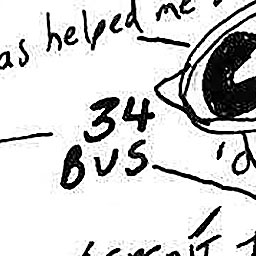 as helped me
34
BUS
'd